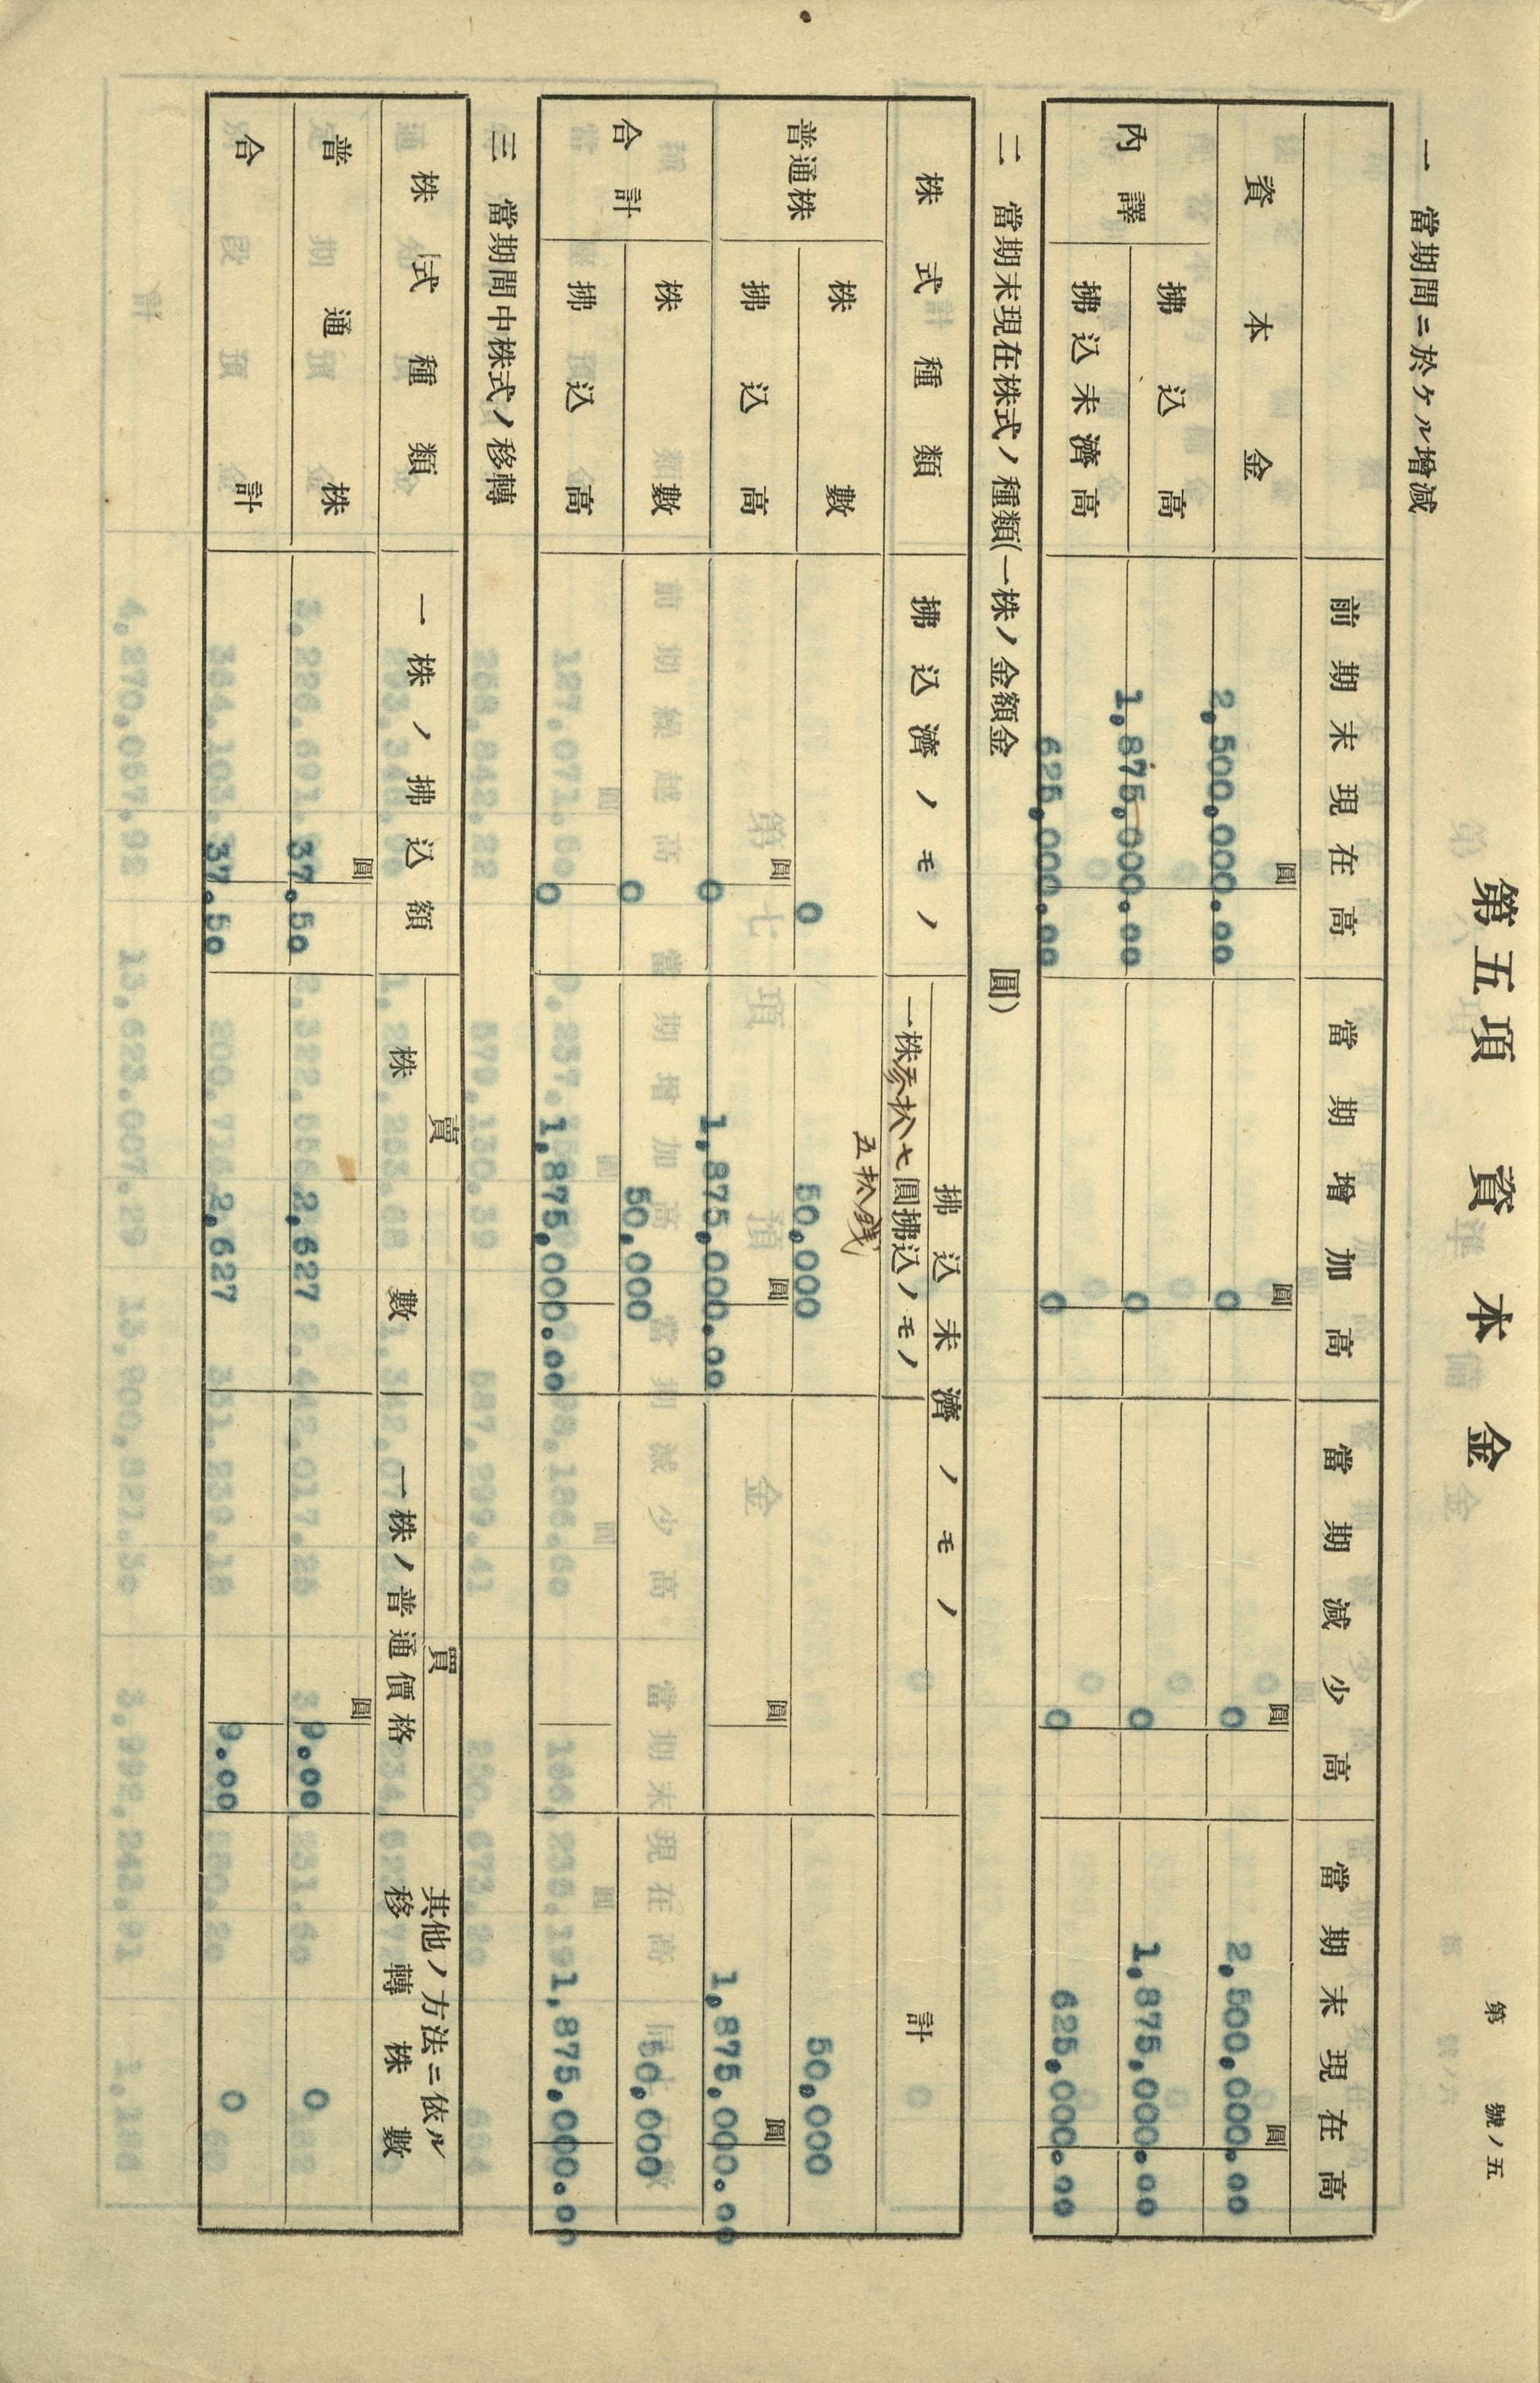 第 號ノ五
第五項 資本金
一 當期間ニ於ケル增減
前期末現在高 當期增加高 當期減少高 當期末現在高
圓 圓 圓 圓
資本金 2,500,000.00 0 0 2,500,000.00
內譯
拂込高 1,875,000.00 0 0 1,875,000.00
拂込未濟高 625,000.00 0 0 625,000.00
二 當期末現在株式ノ種類(一株ノ金額金 圓)
株式種類 拂込濟ノモノ 拂込未濟ノモノ 計
一株參拾七圓拂込ノモノ
五拾銭
普通株
株數 0 50,000 50,000
圓 圓 圓 圓
拂込高 0 1,875,000.00 1,875,000.00
合計
株數 0 50,000 50,000
拂込高 0 1,875,000.00 1,875,000.00
三 當期間中株式ノ移轉
株式種類 一株ノ拂込額 賣買 其他ノ方法ニ依ル
株數 一株ノ普通價格 移轉株數
圓 圓
普通株 37.50 2,627 39.00 0
合計 37.50 2,627 39.00 0